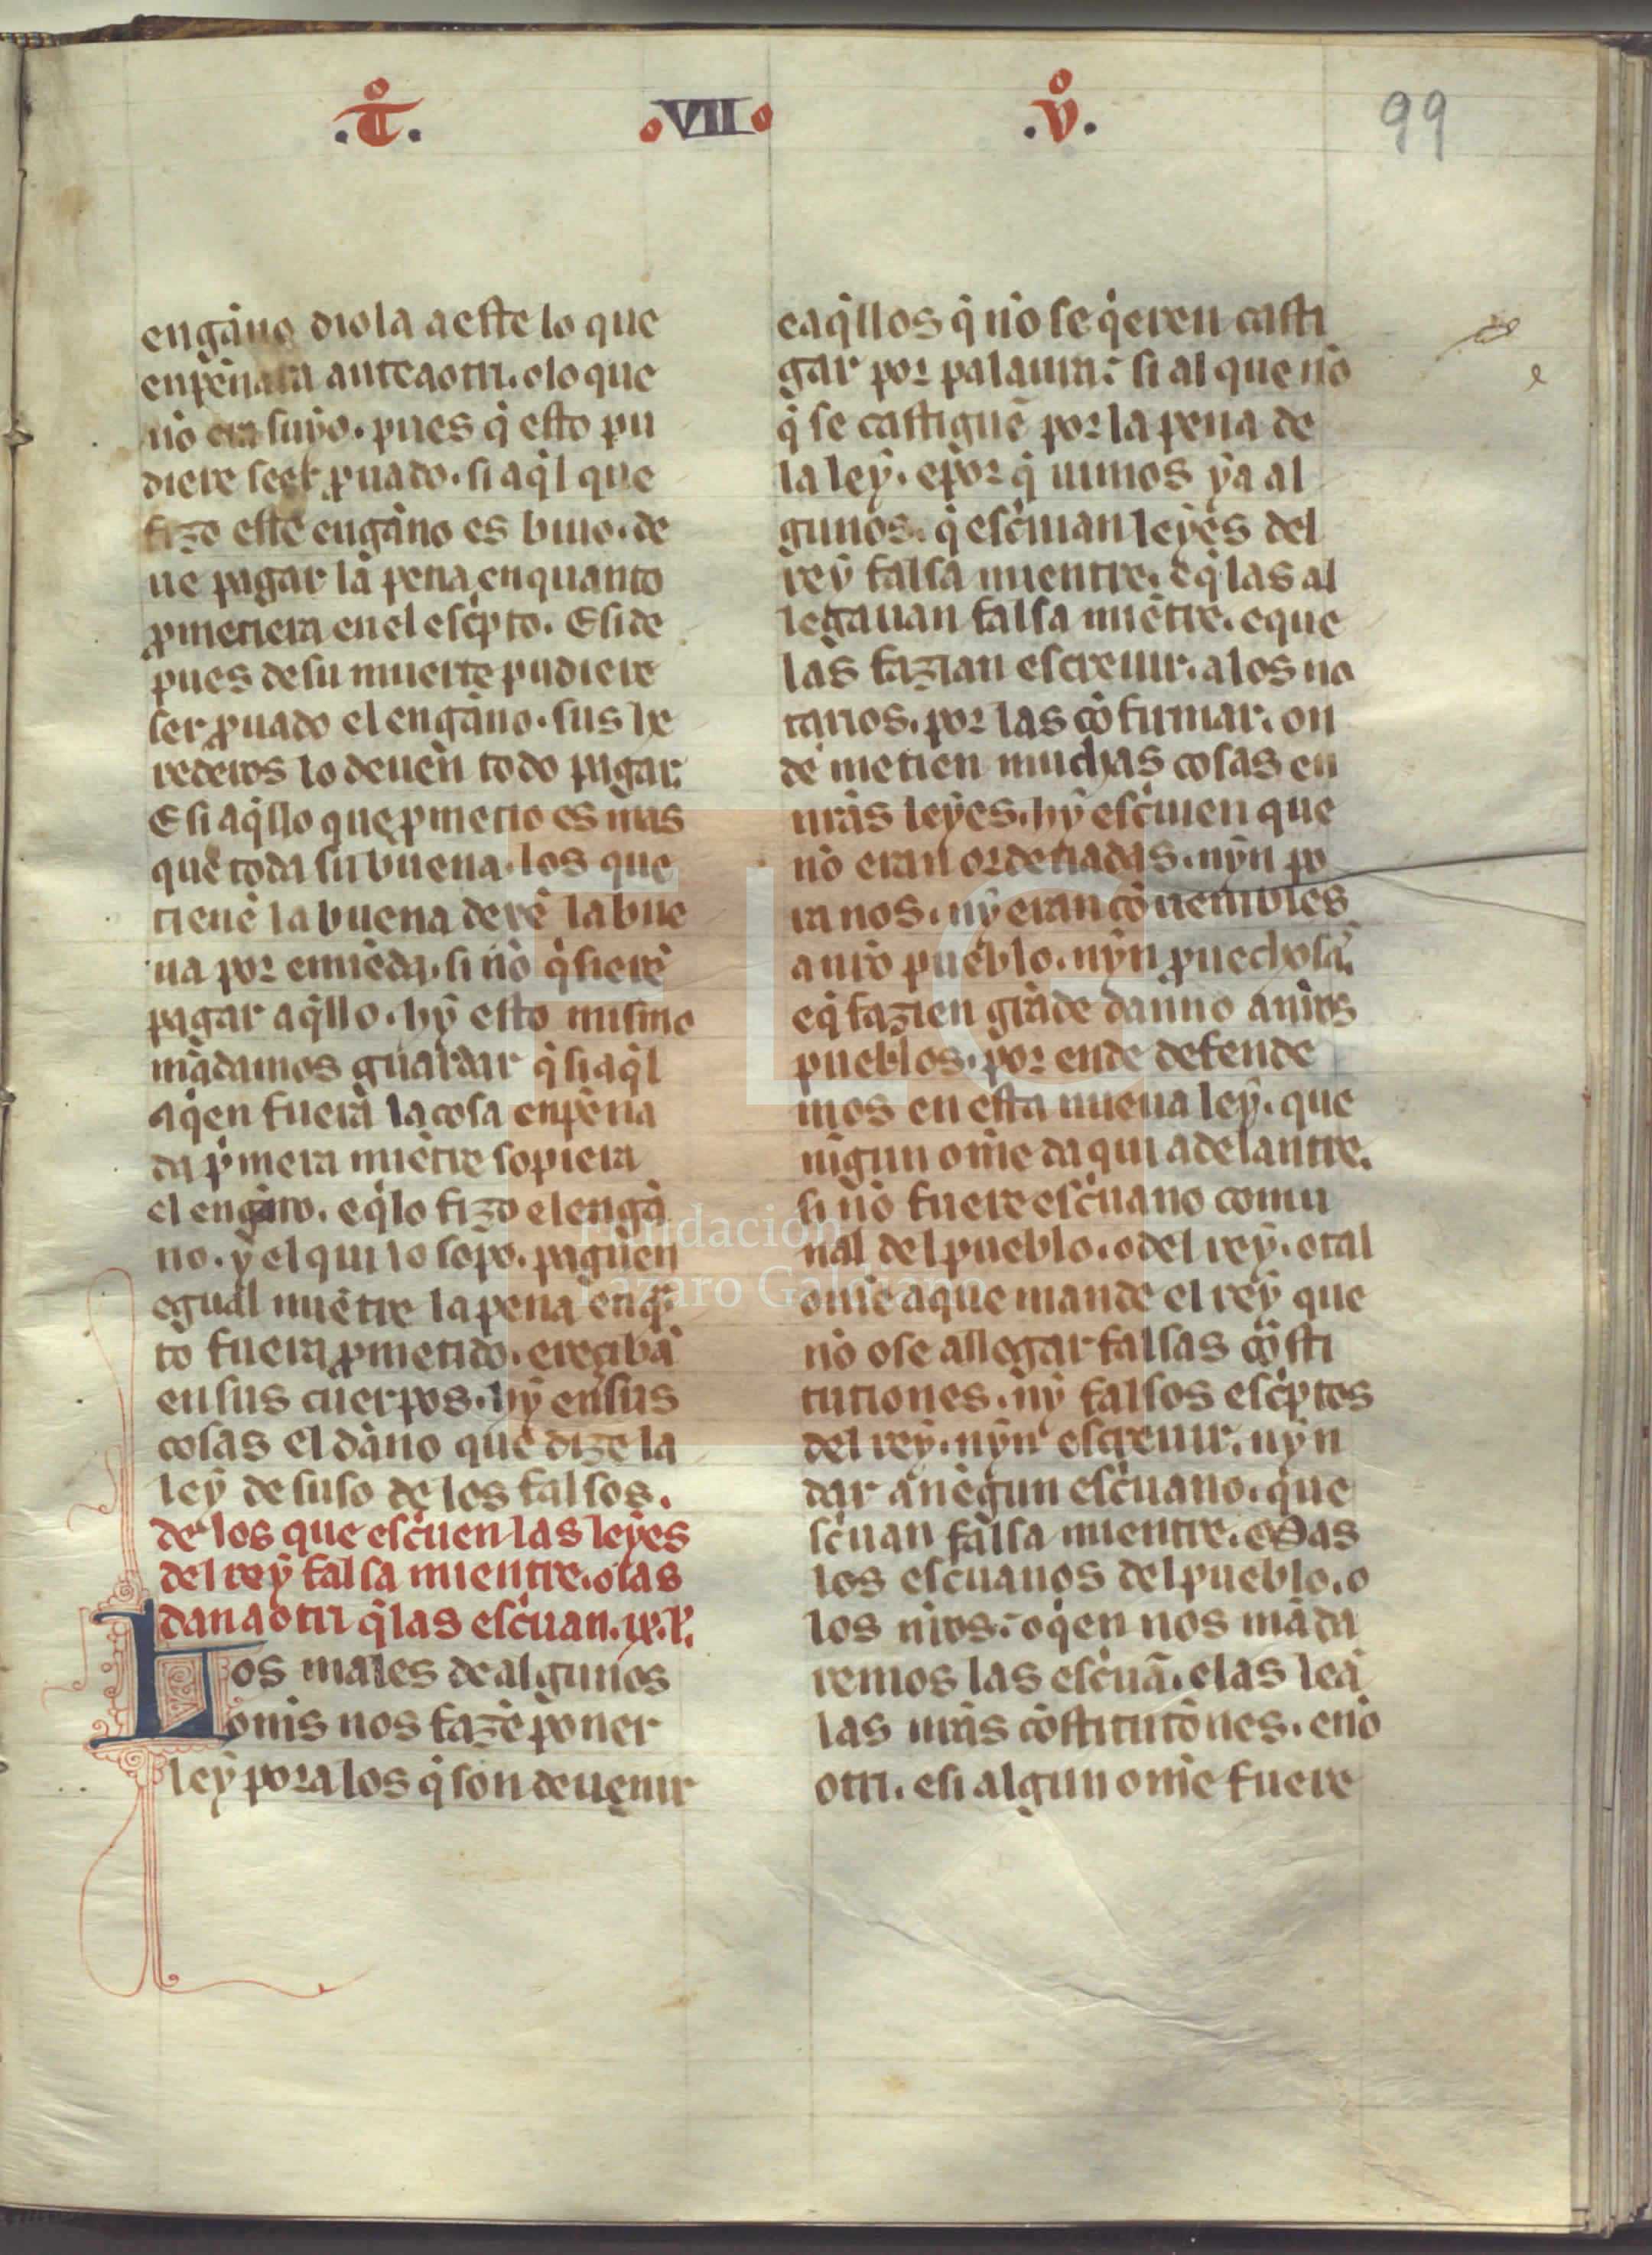 .T̊. .VII. .v̊. 99
engan̄o diola a este lo que
enpen̄ara ante a otri. o lo que
nō era suyo. pues q̄ esto pu
diere seer ꝓuado. si aq̄l que
fizo este engān̄o es biuo. de
ue pagar la pena en quanto
ꝓmetiera en el escͥpto. E si de
pues de su muerte pudiere
ser ꝓuado el engan̄o. sus he
rederos lo deuen todo pagar.
E si aq̄llo que ꝓmetio es mas
que toda su buena. los que
tienē la buena dexē la bue
na por emiēda. si nō q̄sierē
pagar aq̄llo. hy esto mismo
mādamos guardar q̄ si aq̄l
aq̄en fuera la cosa enpēna
da pͥmera miētre sopiera
el engan̄o. e q̄ lo fizo el enga
no. y el qui lo sopo. paguen
egual miētre la pena en qͣ
to fuera ꝓmetido. e recibā
en sus cuerpos. hy en sus
cosas el dan̄o que dize la
ley de suso de los falsos.
de los que escͥuen las leyes
del rey falsa mientre. o las
dan a otri q̄ las escͥuan. ix. t̊.
Los males de algunos
omis nos fazē poner
ley pora los q̄ son de uenir
e aq̄llos q̄ nō se q̄eren casti
gar por palaura: si al que nō
q̄ se castiguē por la pena de
la ley. e por q̄ uimos ya al
gunos. q̄ escͥuian leyes del
rey falsa mientre. e q̄ las al
legauan falsa miētre. e que
las fazian escreuir. a los no
tarios. por las cōfirmar. on
de metien muchas cosas en
nrās leyes. hy escͥuien que
nō eran ordenadas. nyn po
ra nos. ny eran cōuenibles
a nrō pueblo. nyn ꝓuechosa.
e q̄ fazien grāde danno a nrōs
pueblos. por ende defende
mos en esta nueua ley. que
nigun omē da qui adelantre.
si nō fuere escͥuano comu
nal del pueblo. o del rey. o tal
omē a que mande el rey que
nō ose allegar falsas cōsti
tutiones. ny falsos escͥptos
del rey. nyn escreuir. nyn
dar a nēgun escͥuano. que
scͥuan falsa mientre. e Das
los escͥuanos del pueblo. o
los nrōs: o q̄en nos māda
remos las escͥuā. e las leā
las nrās cōstitutōnes. e nō
otri. e si algun omē fuere
Fundación
Lázaro Galdiano
FLG